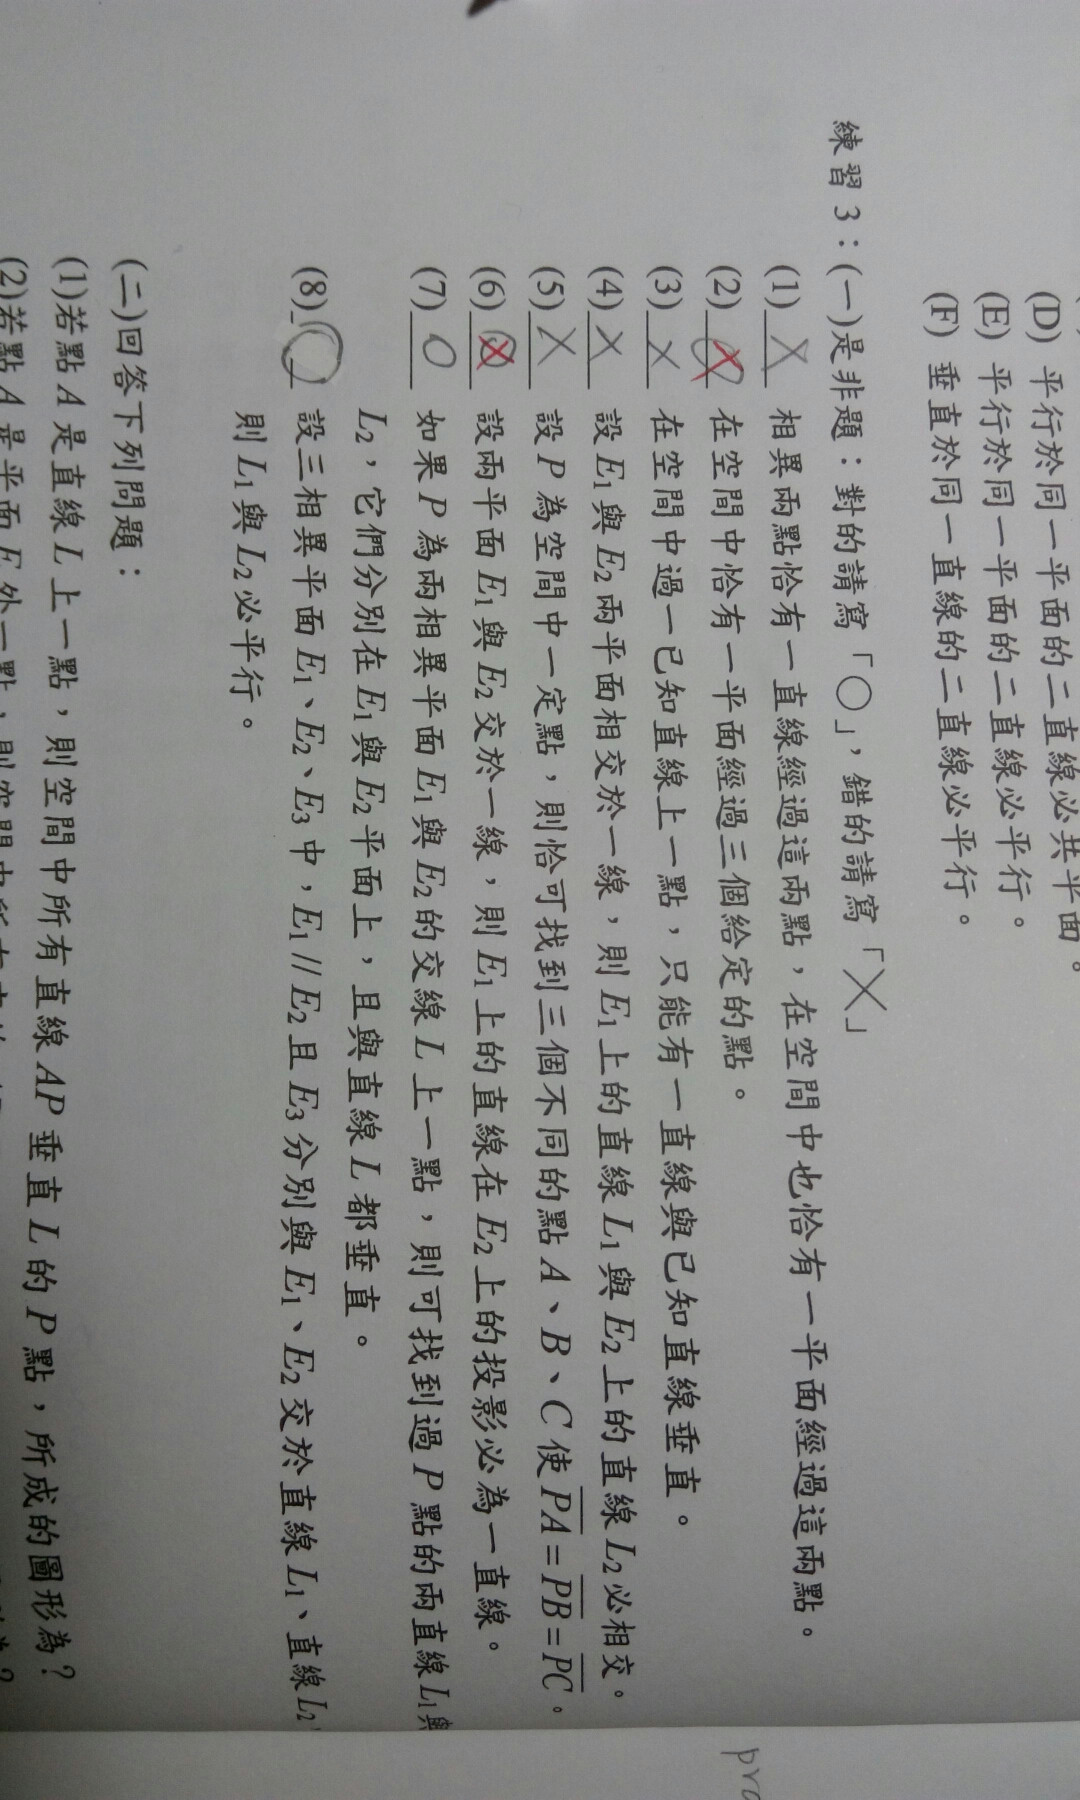 (D) 平行於同一平面的二直線必共平面。
(E) 平行於同一平面的二直線必平行。
(F) 垂直於同一直線的二直線必平行。
練習3：(一)是非題：對的請寫「○」，錯的請寫「╳」
(1) X 相異兩點恰有一直線經過這兩點，在空間中也恰有一平面經過這兩點。
(2) X 在空間中恰有一平面經過三個給定的點。
(3) X 在空間中過一已知直線上一點，只能有一直線與已知直線垂直。
(4) X 設E₁與E₂兩平面相交於一線，則E₁上的直線L₁與E₂上的直線L₂必相交。
(5) X 設P為空間中一定點，則恰可找到三個不同的點A、B、C使PA=PB=PC。
(6) X 設兩平面E₁與E₂交於一線，則E₁上的直線在E₂上的投影必為一直線。
(7) O 如果P為兩相異平面E₁與E₂的交線L上一點，則可找到過P點的兩直線L₁與
L₂，它們分別在E₁與E₂平面上，且與直線L都垂直。
(8) O 設三相異平面E₁、E₂、E₃中，E₁//E₂且E₃分別與E₁、E₂交於直線L₁、直線L₂
則L₁與L₂必平行。
(二)回答下列問題：
(1)若點A是直線L上一點，則空間中所有直線AP垂直L的P點，所成的圖形為？
(2)若點A是平面E外一點，則空間中所有